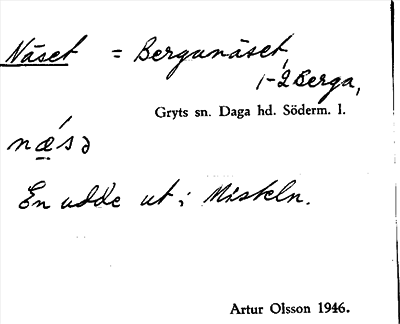 Näset = Berganäset,
1-2 Berga,
Gryts sn. Daga hd. Söderm. l.
næ´sə
En udde ut i Miskeln.
Artur Olsson 1946.